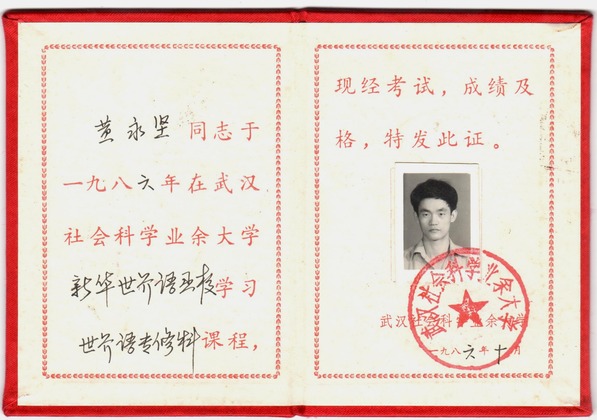 黄永坚 同志于
一九八六年在武汉
社会科学业余大学
新华世界语函校学习
世界语专修科课程，
现经考试，成绩及
格，特发此证。
武汉社会科学业余大学
武汉社会科学业余大学
一九八六年十月